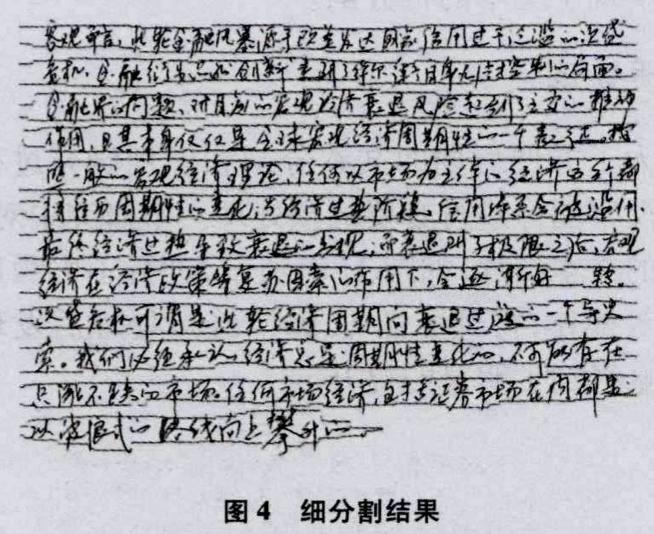 客观而言，此轮金融风暴源于欧美发达国家信用过于泛滥的次贷
危机，金融衍生品的创新使到了华尔街自身无法控制的局面。
金融界的问题，对目前的宏观经济衰退风险起到了主要的推动
作用，且其本身仅仅是全球宏观经济周期性的一个表述，按
照一般的宏观经济理论，任何以市场为主体的经济运行都
将经历周期性的变化，当经济过热阶段，信用体系会被滥用，
最终经济过热导致衰退的出现，而衰退到了极限之后，宏观
经济在经济政策等复苏因素的作用下，会逐渐好转。
次贷危机可谓是此轮经济周期向衰退过渡的一个导火
索。我们必须承认，经济总是周期性变化的，不可能存在
只涨不跌的市场。任何市场经济，包括证券市场在内都是
以波浪式的曲线向上攀升的。
图4 细分割结果